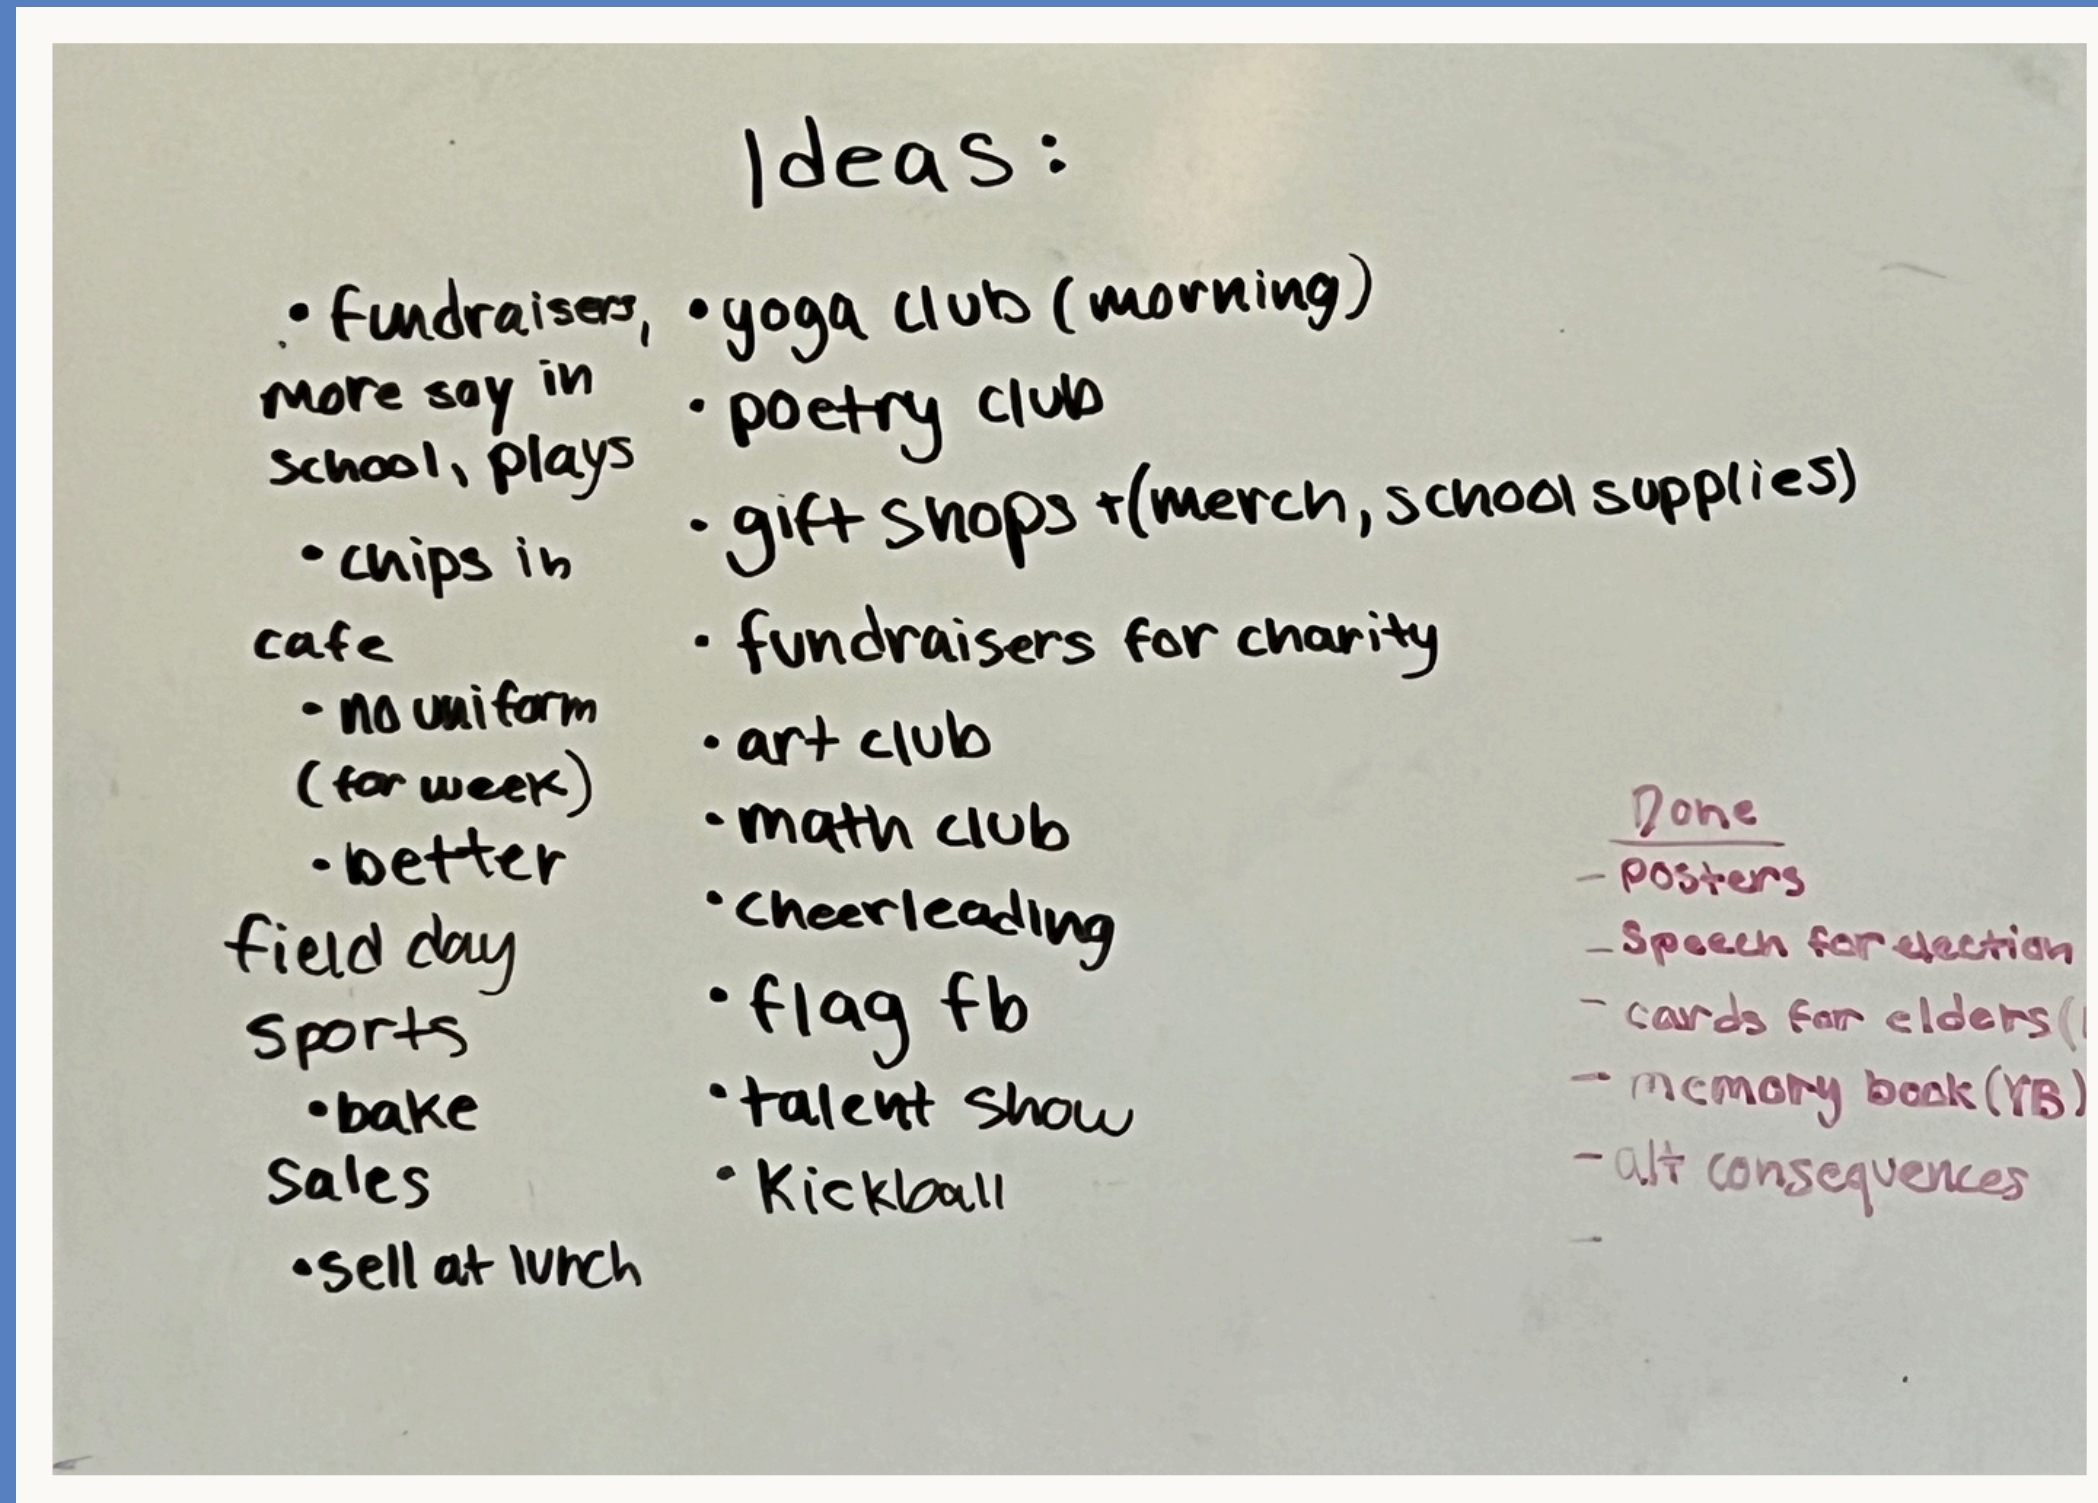 Ideas:
• fundraisers,
more say in
school, plays
• chips in
cafe
• no uniform
(for week)
• better
field day
sports
• bake
sales
• sell at lunch
• yoga club (morning)
• poetry club
• gift shops +(merch, school supplies)
• fundraisers for charity
• art club
• math club
• cheerleading
• flag fb
• talent show
• Kickball
Done
- posters
- Speech for election
- cards for elders (
- memory book (YB)
- alt consequences
-